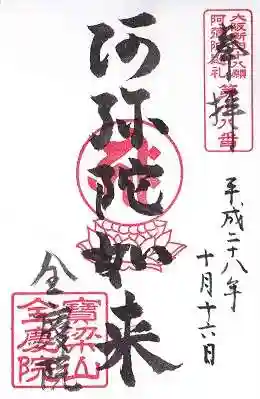 大阪新四十八願
阿弥陀巡礼
奉拝
平成二十八年
十月十六日
阿弥陀如来
全慶院
寶梁山
全慶院